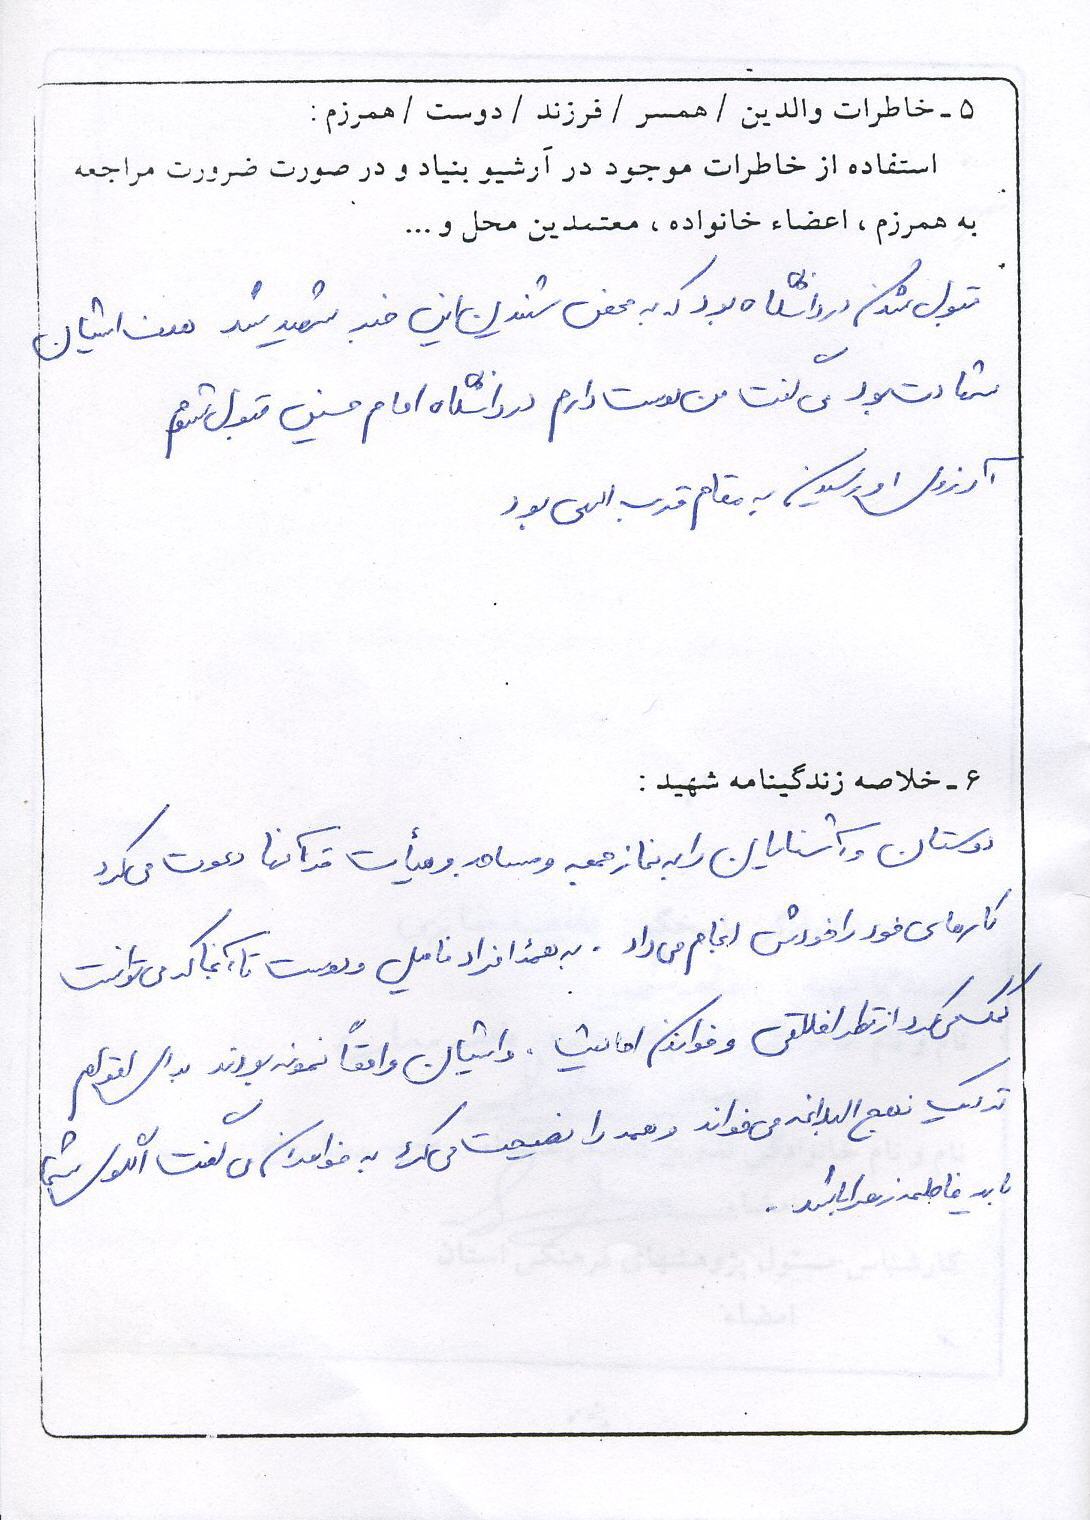 ۵ ـ خاطرات والدین / همسر / فرزند / دوست / همرزم :
استفاده از خاطرات موجود در آرشیو بنیاد و در صورت ضرورت مراجعه
به همرزم ، اعضاء خانواده ، معتمدین محل و ...
قبول شدن در دانشگاه بود که به محض شنیدن این خبر شهید شد هدف ایشان
شهادت بود می گفت من دوست دارم در دانشگاه امام حسین قبول شوم
آرزوی او رسیدن به مقام قرب الهی بود
۶ ـ خلاصه زندگینامه شهید :
دوستان و آشنایان را به نماز جمعه و مساجد و هیأت قرآنها دعوت می کرد
کارهای خود را خودش انجام می داد . به همه افراد فامیل و دوست تا آنجا که می توانست
کمک می کرد از نظر اخلاقی و خواندن احادیث . و ایشان واقعاً نمونه بودند برای اقوام
نهج البلاغه می خواند و همه را نصیحت می کرد به خواهران می گفت الگوی شما
باید فاطمه زهرا باشد .
کارشناس مسئول پژوهشهای فرهنگی استان